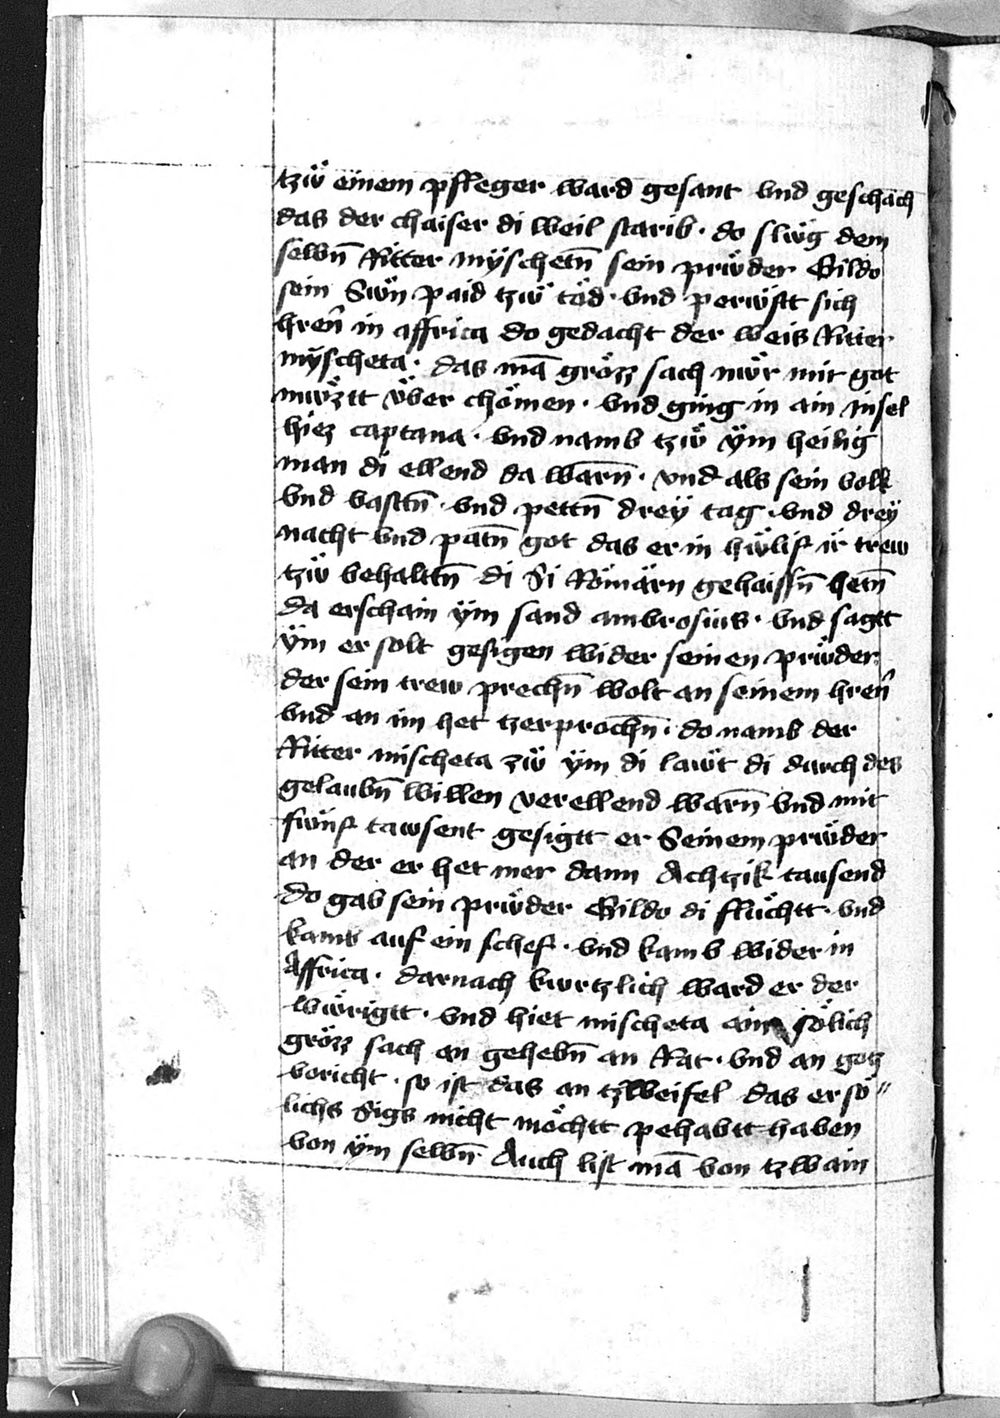 tzẘ einem pfleger ward gesant vnd geschach
das der chaiser di weil starib · do slůg dem
selbn̄ Ritter mÿschetn̄ sein prẘder Gildo
sein Sẘn paid tzẘ tǒd · vnd perẘstt sich
hren̄ in affrica do gedacht der weis Ritter
mÿscheta · das mā grözz sach nẘr mit got
mẘztt v̈ber chömen · vnd ging in ain insel
hiez captana · vnd namb tzẘ ÿm heilig
man di ellend da warn̄ · vnd als sein volk
vnd vastn̄ · vnd pettn̄ dreÿ tag · vnd dreÿ
nacht vnd patn̄ got das er in hẘlif ir trew
tzẘ behaltn̄ di Si Römärn gehaissn̄ hetn̄
da erschain ÿm sand ambrosius · vnd sagtt
ÿm er solt gesigen wider seinen prẘder
der sein trew prechn̄ wolt an seinem hren̄
vnd an im het tzerprochn̄ · do namb der
Ritter mischeta zẘ ÿm di laẘt di durch des
gelaubn̄ willen verellend warn̄ vnd mit
fẘnf tawsent gesigtt er Seinem prẘder
an der er het mer dann Achtzik tausend
do gab sein prẘder Gildo di flüchtt · vnd
kamb auf ein schef · vnd kamb wider in
Affrica · darnach kurtzlich ward er der
wẘrigtt · vnd hiet mischeta ain sölich
grözz sach an gehebn̄ an Rat · vnd an gotz
voricht · so ist das an tzweifel das er sö"
lichs Sigs nicht möchtt pehabtt haben
von ÿm selbn̄ · Auch list mā von tzwain